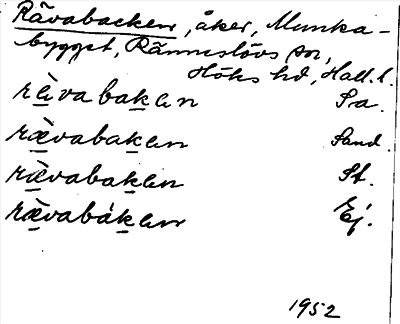 Rävabacken, åker, Munka-
bygget, Ränneslövs sn,
Höks hd, Hall. l.
rä̀vabakan Sa.
ræ̀vabakan Sand.
ræ̀vabakan St.
ræ̀vabákan Ej.
1952